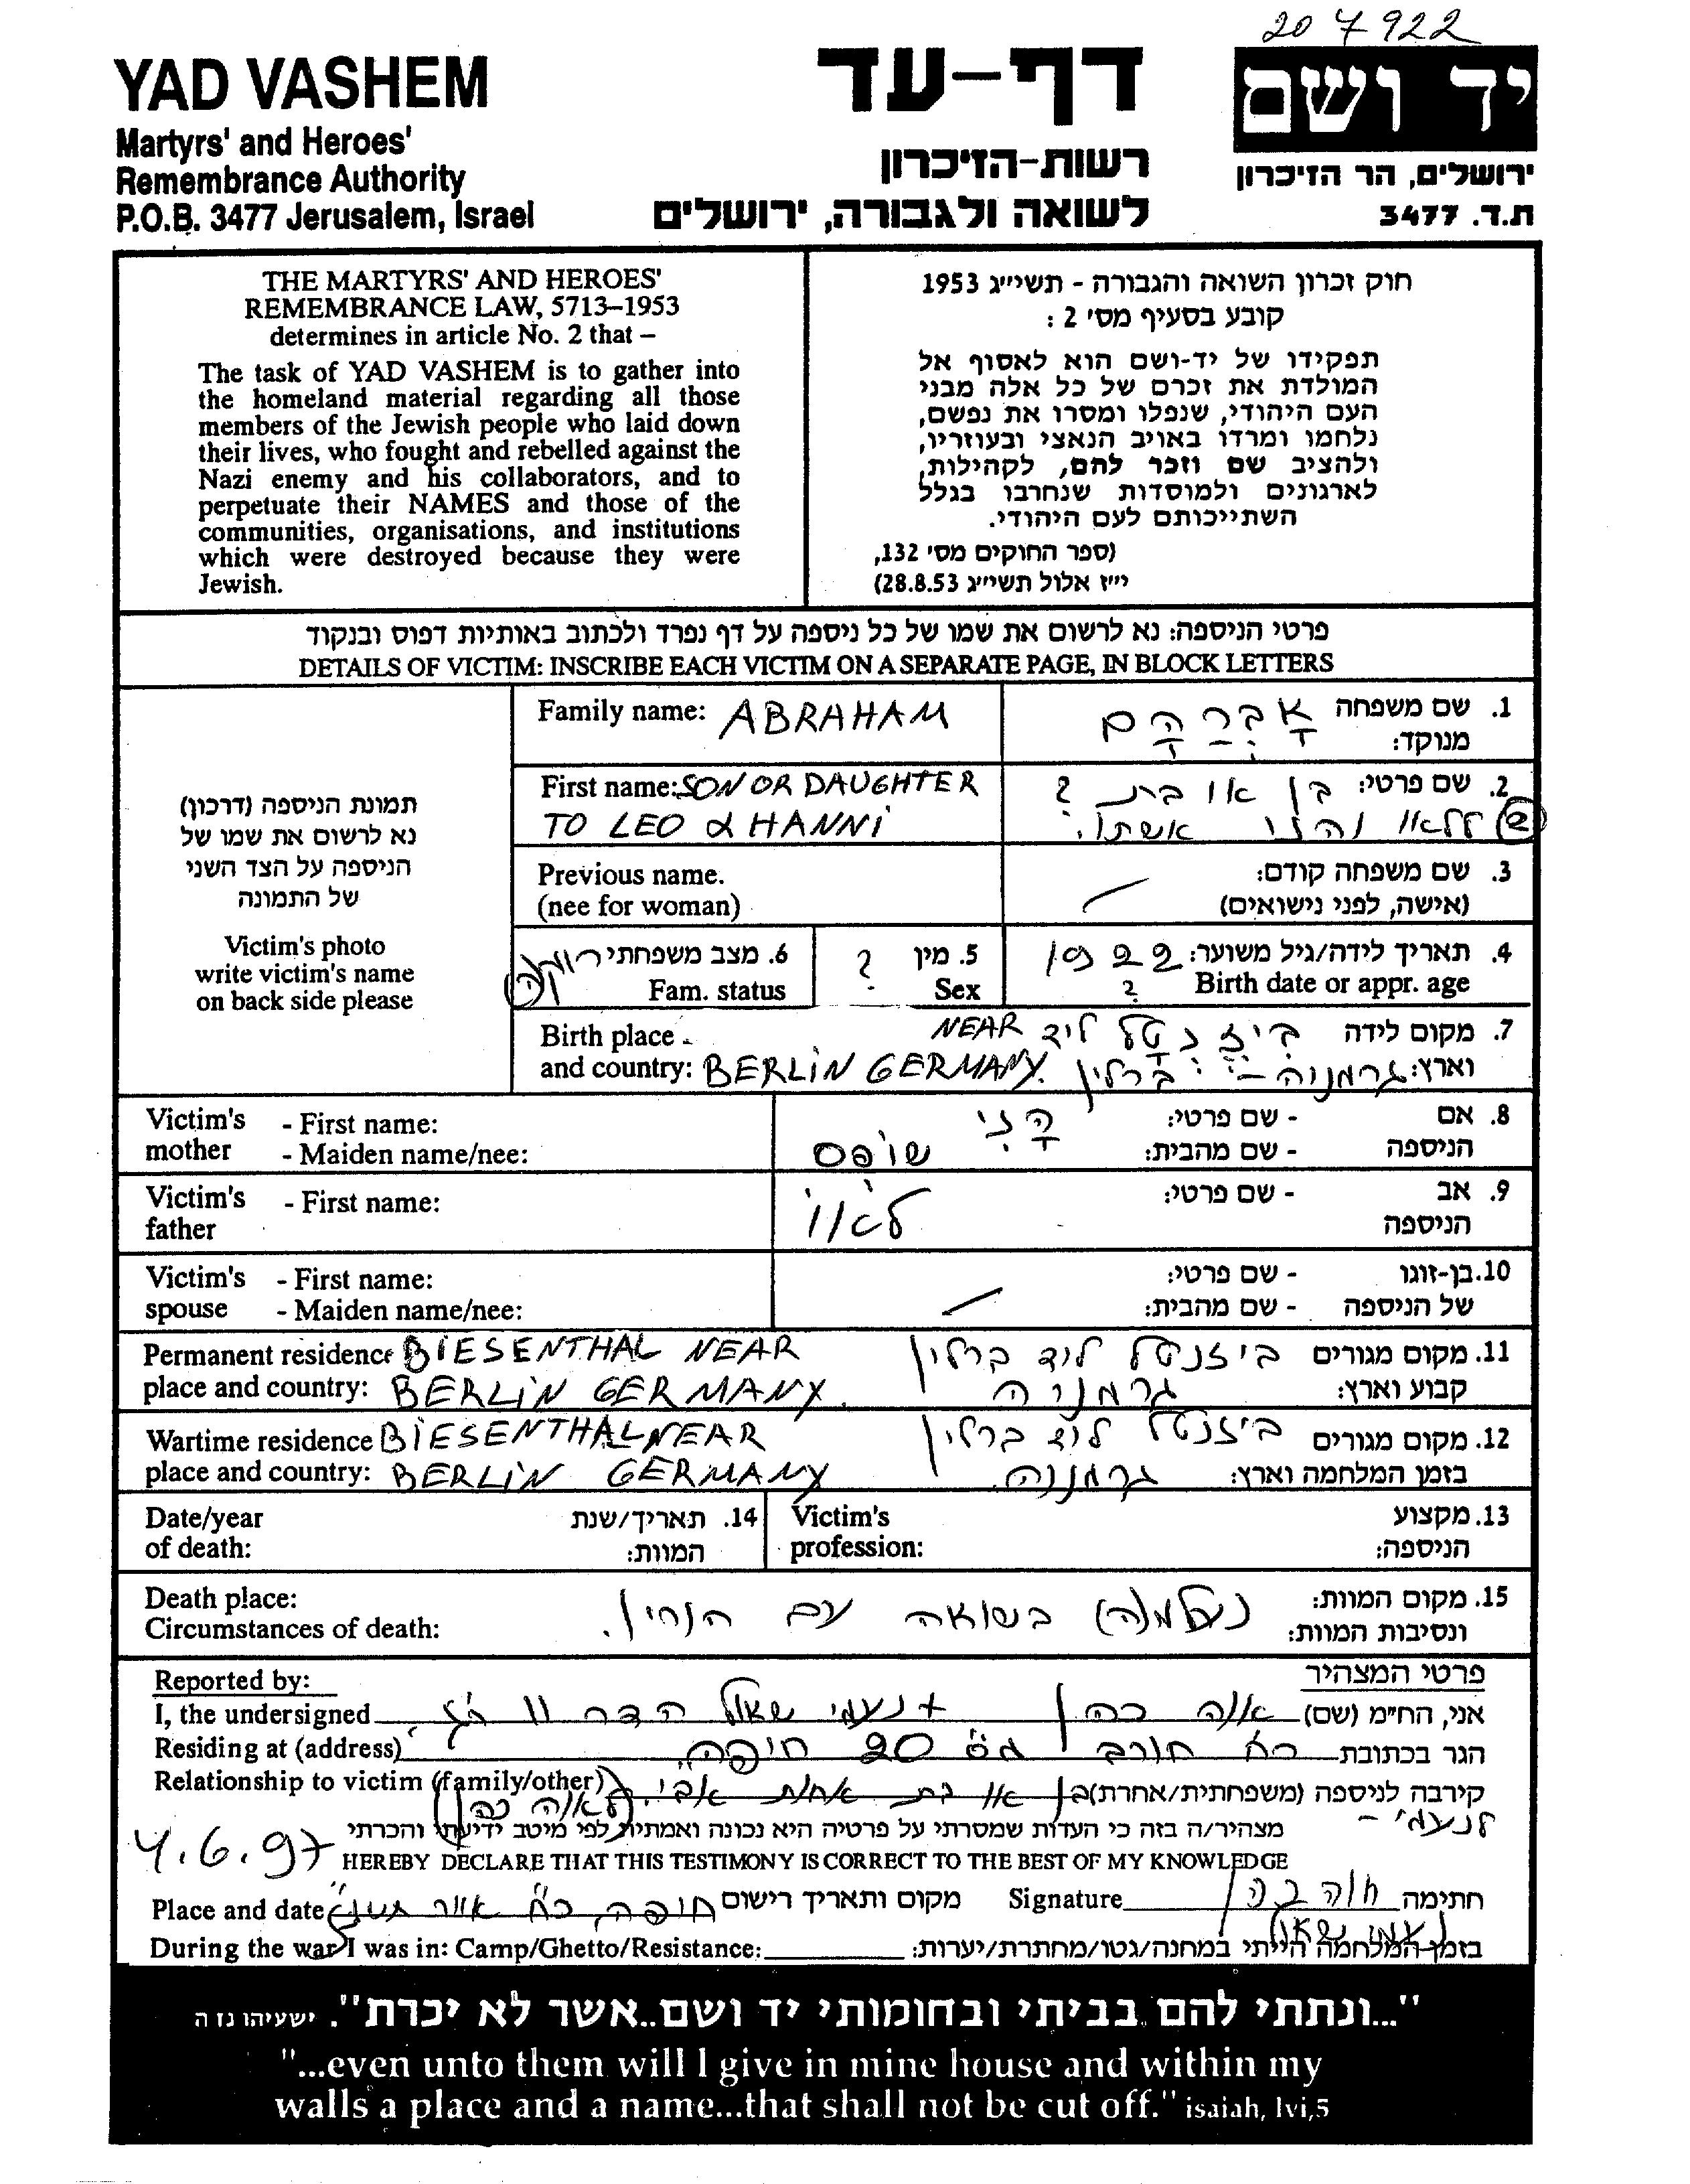 20 7 922
YAD VASHEM
Martyrs' and Heroes'
Remembrance Authority
P.O.B. 3477 Jerusalem, Israel
דף-עד
רשות-הזיכרון
לשואה ולגבורה, ירושלים
יד ושם
ירושלים, הר הזיכרון
ת.ד. 3477
THE MARTYRS' AND HEROES'
REMEMBRANCE LAW, 5713–1953
determines in article No. 2 that –
The task of YAD VASHEM is to gather into
the homeland material regarding all those
members of the Jewish people who laid down
their lives, who fought and rebelled against the
Nazi enemy and his collaborators, and to
perpetuate their NAMES and those of the
communities, organisations, and institutions
which were destroyed because they were
Jewish.
חוק זכרון השואה והגבורה - תשי״ג 1953
קובע בסעיף מס׳ 2 :
תפקידו של יד-ושם הוא לאסוף אל
המולדת את זכרם של כל אלה מבני
העם היהודי, שנפלו ומסרו את נפשם,
נלחמו ומרדו באויב הנאצי ובעוזריו,
ולהציב שם וזכר להם, לקהילות,
לארגונים ולמוסדות שנחרבו בגלל
השתייכותם לעם היהודי.
(ספר החוקים מס׳ 132,
י״ז אלול תשי״ג 28.8.53)
פרטי הניספה: נא לרשום את שמו של כל ניספה על דף נפרד ולכתוב באותיות דפוס ובנקוד
DETAILS OF VICTIM: INSCRIBE EACH VICTIM ON A SEPARATE PAGE, IN BLOCK LETTERS
תמונת הניספה (דרכון)
נא לרשום את שמו של
הניספה על הצד השני
של התמונה
Victim's photo
write victim's name
on back side please
Family name: ABRAHAM
1. שם משפחה אַבְרָהָם
מנוקד:
First name: SON OR DAUGHTER
TO LEO & HANNI
2. שם פרטי: בן או בת ?
② ללאו והני אשתו.
Previous name.
(nee for woman)
3. שם משפחה קודם:
(אישה, לפני נישואים)
4. תאריך לידה/גיל משוער: 1922
Birth date or appr. age ?
5. מין ?
Sex
6. מצב משפחתי רווק(ה)
Fam. status
Birth place
and country: NEAR
BERLIN GERMANY.
7. מקום לידה ביזנטל ליד
וארץ: ברלין - גרמניה
Victim's - First name:
mother - Maiden name/nee:
8. אם - שם פרטי: הני
הניספה - שם מהבית: שופס
Victim's - First name:
father
9. אב - שם פרטי: לאו
הניספה
Victim's - First name:
spouse - Maiden name/nee:
10. בן-זוגו - שם פרטי:
של הניספה - שם מהבית:
Permanent residence BIESENTHAL NEAR
place and country: BERLIN GERMANY.
11. מקום מגורים ביזנטל ליד ברלין
קבוע וארץ: גרמניה
Wartime residence BIESENTHAL NEAR
place and country: BERLIN GERMANY
12. מקום מגורים ביזנטל ליד ברלין
בזמן המלחמה וארץ: גרמניה.
Date/year
of death:
14. תאריך/שנת
המוות:
Victim's
profession:
13. מקצוע
הניספה:
Death place:
Circumstances of death:
15. מקום המוות:
ונסיבות המוות: נעלמ(ה) בשואה עם הורין.
Reported by:
פרטי המצהיר
I, the undersigned
אני, החי״מ (שם) כהן + נעמי שאול
Residing at (address)
הגר בכתובת חורב 20 חיפה.
Relationship to victim (family/other)
קירבה לניספה (משפחתית/אחרת) בן או בת אחות אבי.
לנעמי -
מצהיר/ה בזה כי העדות שמסרתי על פרטיה היא נכונה ואמתית לפי מיטב ידיעתי והכרתי
4.6.97 HEREBY DECLARE THAT THIS TESTIMONY IS CORRECT TO THE BEST OF MY KNOWLEDGE
Place and date מקום ותאריך רישום חיפה, כ״ח אייר תשנ״ז
Signature חתימה
During the war I was in: Camp/Ghetto/Resistance: בזמן המלחמה הייתי במחנה/גטו/מחתרת/יערות:
"...ונתתי להם בביתי ובחומותי יד ושם..אשר לא יכרת". ישעיהו נז ה
"...even unto them will I give in mine house and within my
walls a place and a name...that shall not be cut off." isaiah, lvi,5